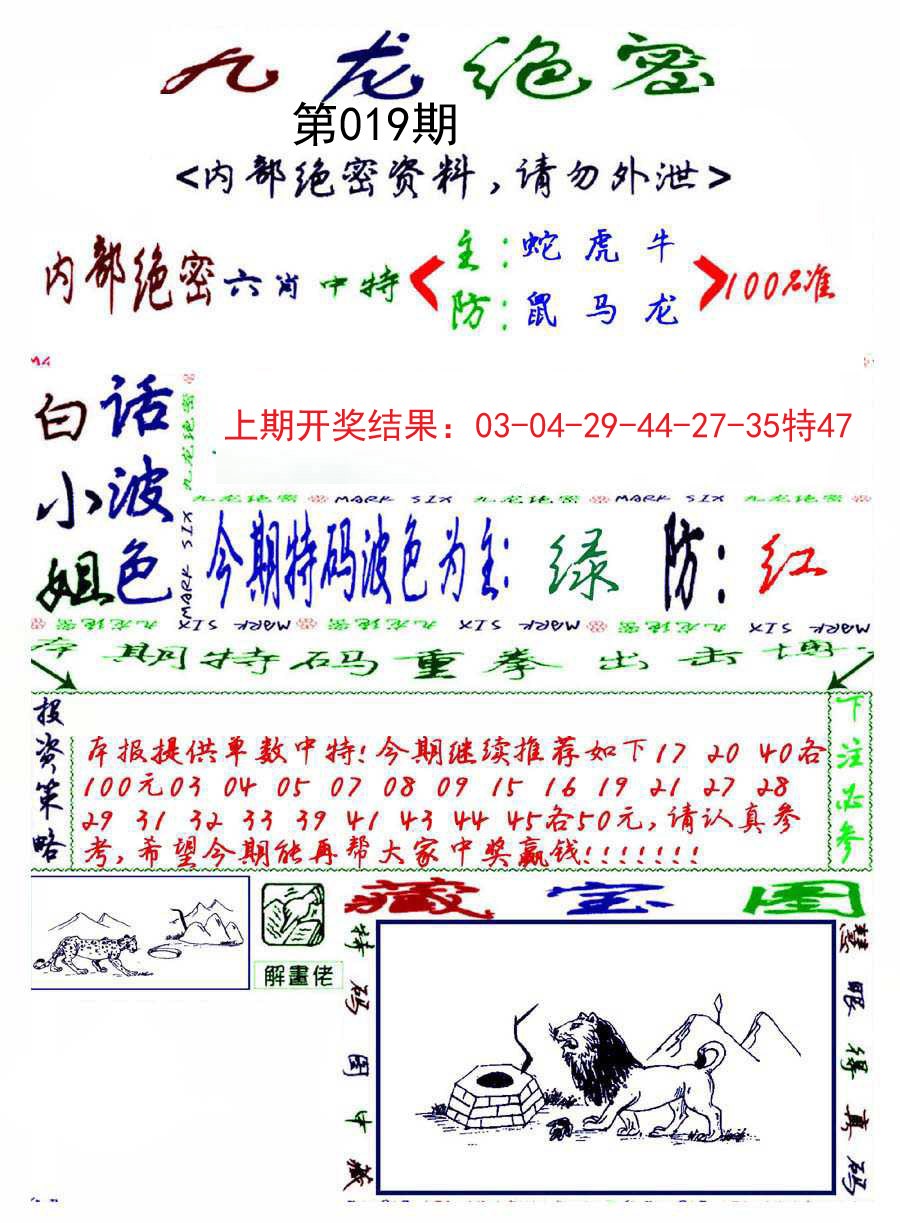 九龙绝密
第019期
<内部绝密资料，请勿外泄>
内部绝密六肖中特
主：蛇 虎 牛
防：鼠 马 龙
100%准
白小姐
话波色
九龙绝密
MARK SIX
上期开奖结果：03-04-29-44-27-35特47
九龙绝密 MARK SIX 九龙绝密 MARK SIX 九龙绝密
今期特码波色为主：绿 防：红
九龙绝密 MARK SIX 九龙绝密 MARK SIX 九龙绝密 MARK SIX
本期特码重拳出击博
投资策略
本报提供单数中特!今期继续推荐如下17 20 40各
100元03 04 05 07 08 09 15 16 19 21 27 28
29 31 32 33 39 41 43 44 45各50元,请认真参
考,希望今期能再帮大家中奖赢钱!!!!!!!
下注必参
解畫佬
藏宝图
特码图中藏
慧眼得真码